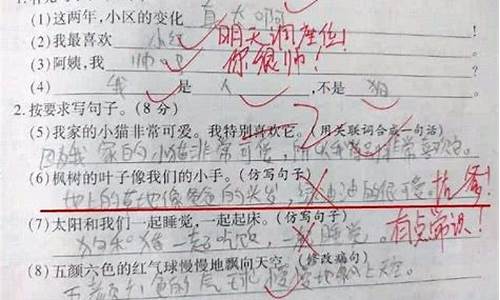 (1)这两年,小区的变化 真大啊
(2)我最喜欢 小红 明天调座位!
(3)阿姨,我 帅吧 你很帅!
(4) 我 是 人 ,不是 狗
2.按要求写句子。(8 分)
(5)我家的小猫非常可爱。我特别喜欢它。(用关联词合成一句话)
因为我家的小猫非常可爱,所以我
(6)枫树的叶子像我们的小手。(仿写句子)
地上的草地像爸爸的头发,绿油油的很可爱。
(7)太阳和我们一起睡觉,一起起床。(仿写句子) 有点常识!
狗和猪一起吃饭,一起睡觉。
(8)五颜六色的红气球慢慢地飘向天空。(修改病句)
五颜六色的气球慢慢地飘上天空。